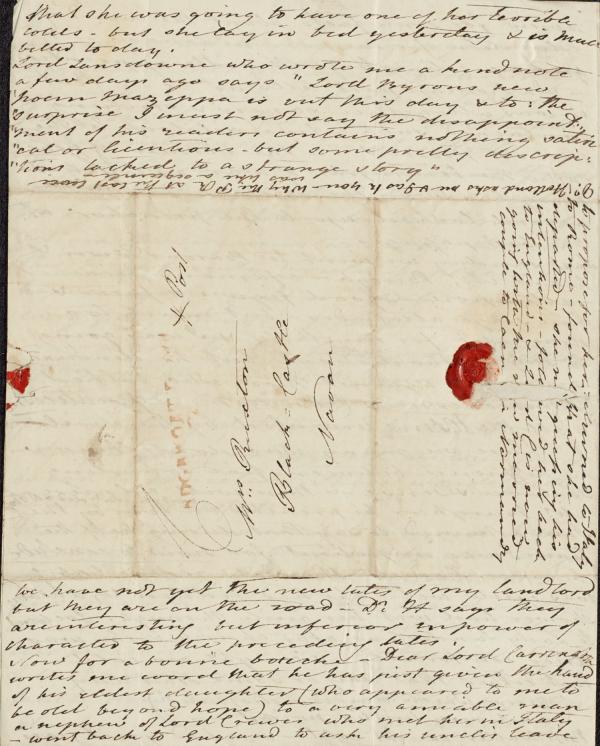 that she was going to have one of her terrible
colds - but she lay in bed yesterday & is much
better to day.
Lord Lansdowne who wrote me a kind note
a few days ago says "Lord Byrons new
"poem Mazeppa is out this day & to: the
"surprise I must not say the disappoint
"ment of his readers contains nothing satiri
"cal or licentious - but some pretty descrip-
"tions tacked to a strange story"
Dr. Holland asks me & I ask you - Why the P R at the last levee
was like a
X Post
Mrs. Ruxton
Black-Castle
Navan
to propose for her - returned to Italy
to Rome - found that she had
departed - she not guessing his
intentions - followed her back
to England - & Lord C is now
going to
couple to Caen in Normandy
we have not yet the new tales of my landlord
but they are on the road - Dr. H says they
are interesting but inferior in power of
character to the preceding tales.
Now for a bonne bouche Dear Lord Carrington
writes me word that he has just given the hand
of his eldest daughter (who appeared to me to
be old beyond hope) to a very amiable man
a nephew of Lord Crewes who met her in Italy
- went back to England to ask his uncles leave